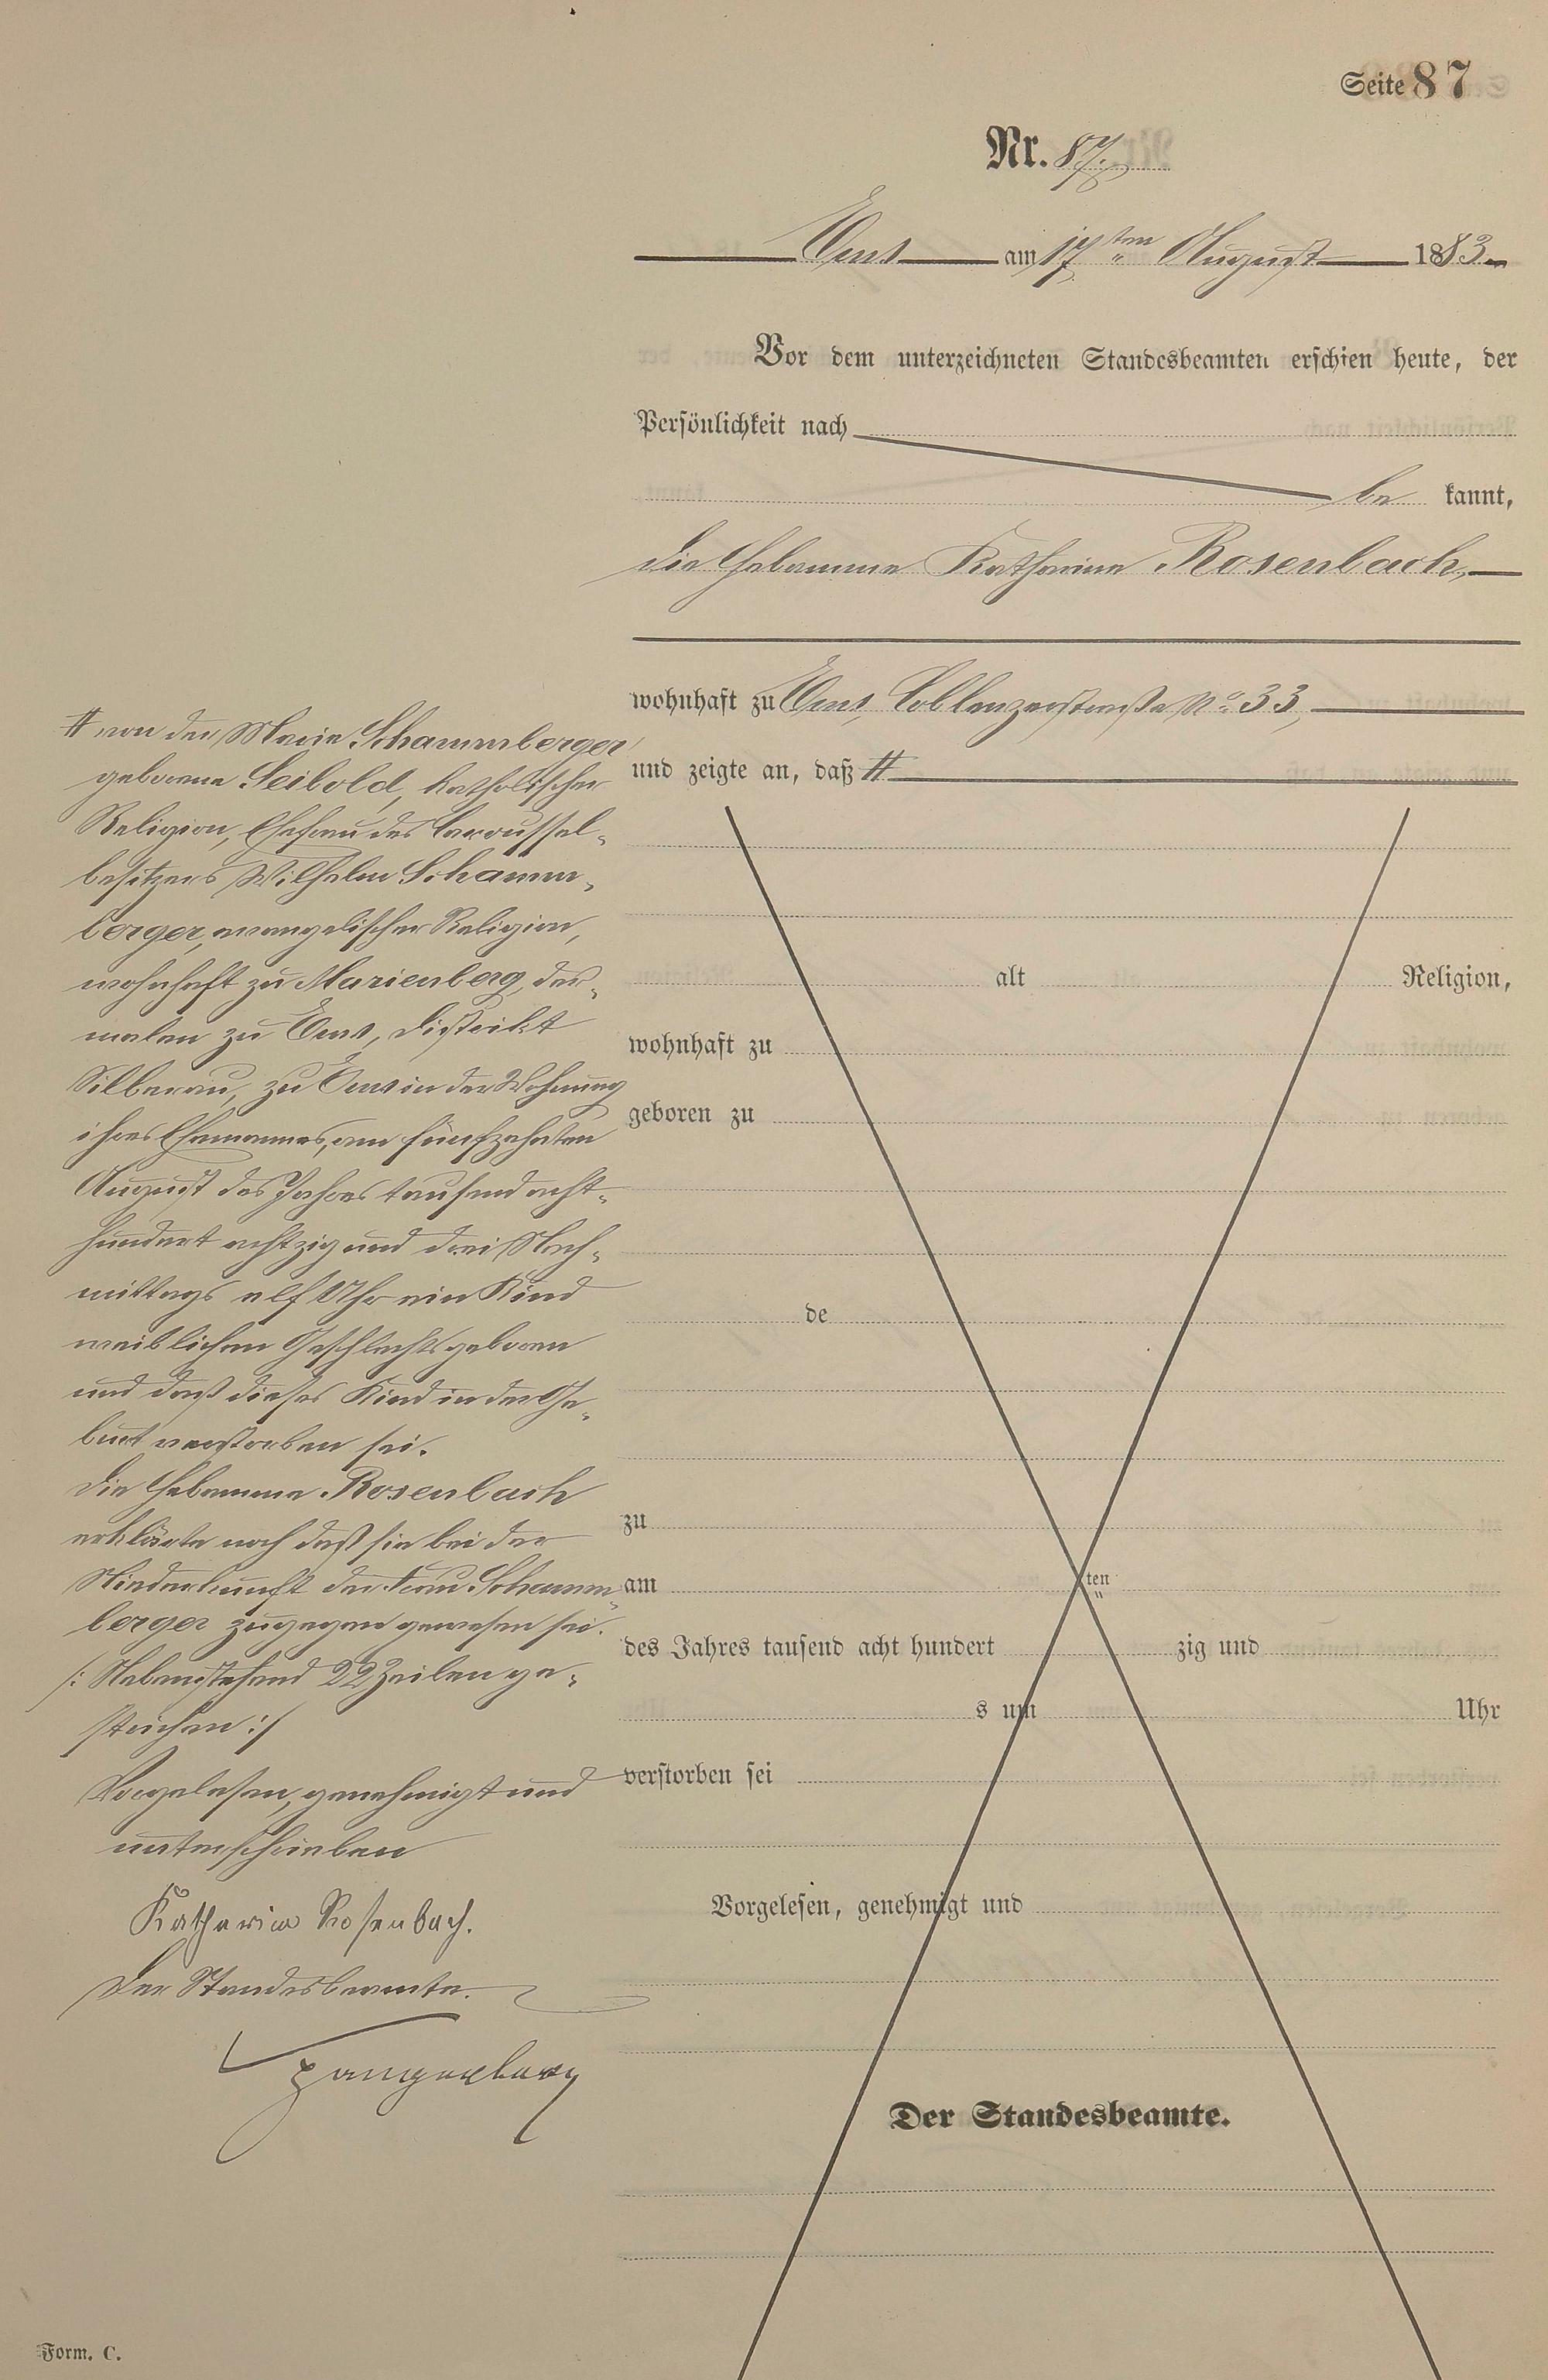 Seite 87
Nr. 87.
Ems am 17ten August 1883
Vor dem unterzeichneten Standesbeamten erschien heute, der
Persönlichkeit nach
be kannt,
die Hebamme Katharina Rosenbach,
wohnhaft zu Ems, Coblenzerstraße No. 33,
und zeigte an, daß #
alt Religion,
wohnhaft zu
geboren zu
de
zu
am ten
des Jahres tausend acht hundert zig und
s um Uhr
verstorben sei
Vorgelesen, genehmigt und
Der Standesbeamte.
# von der Maria Schammberger
geborene Seibold, katholischer
Religion, Ehefrau des Caroussel-
besitzers Wilhelm Schamm-
berger, evangelischer Religion,
wohnhaft zu Marienberg, der-
malen zu Ems, Distrikt
Silberau, zu Ems in der Wohnung
ihres Ehemannes, am fünfzehnten
August des Jahres tausend acht-
hundert achtzig und drei Nach-
mittags elf Uhr ein Kind
weiblichen Geschlechts geboren
und daß dieses Kind in der Ge-
burt verstorben sei.
Die Hebamme Rosenbach
erklärte noch daß sie bei der
Niederkunft der Frau Schamm-
berger zugegen gewesen sei.
/: Nebenstehend 22 Zeilen ge-
strichen :/
Vorgelesen, genehmigt und
unterschrieben
Katharina Rosenbach.
Der Standesbeamte.
Spangenberg
Form. C.